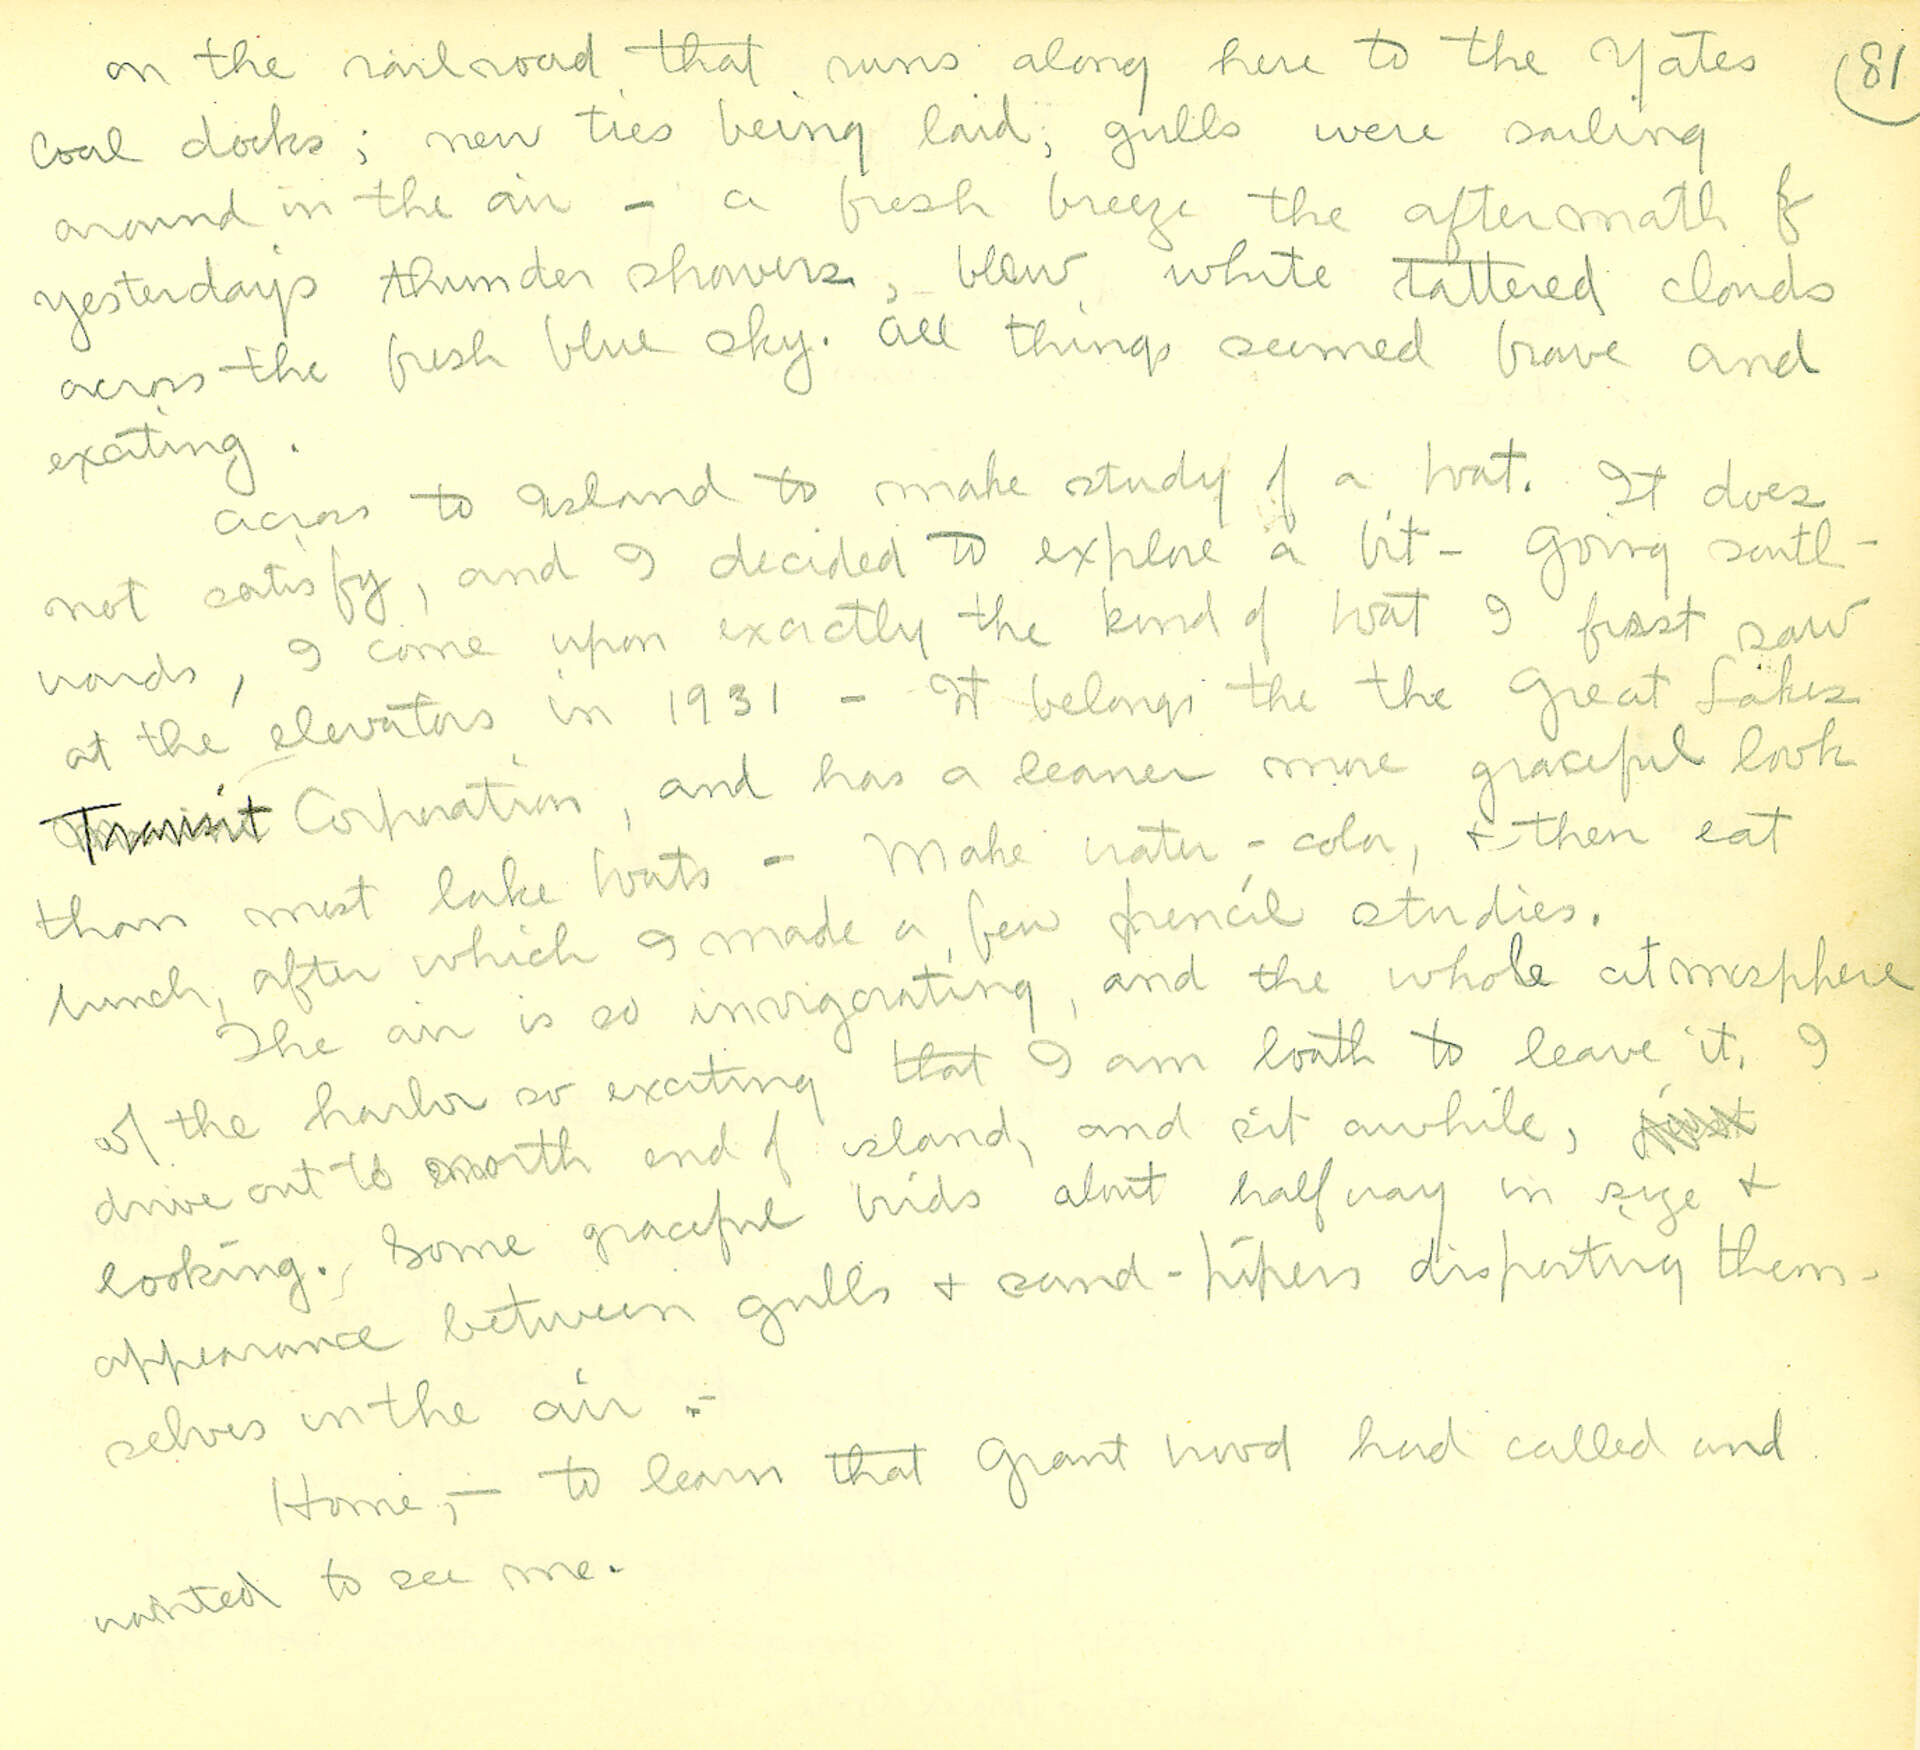 on the railroad that runs along here to the Yates 81
Coal docks; new ties being laid; gulls were sailing
around in the air - a fresh breeze the aftermath of
yesterday's thunder showers, blew white tattered clouds
across the fresh blue sky. All things seemed brave and
exciting.
Across to Island to make study of a boat. It does
not satisfy, and I decided to explore a bit - Going south-
wards, I come upon exactly the kind of boat I first saw
at the elevators in 1931 - It belongs the the Great Lakes
Transit Corporation, and has a leaner more graceful look
than most lake boats - Make water-color, + then eat
lunch, after which I made a few pencil studies.
The air is so invigorating, and the whole atmosphere
of the harbor so exciting that I am loath to leave it. I
drive out to north end of island, and sit awhile, just
looking. Some graceful birds about half way in size +
appearance between gulls + sand-pipers disporting them-
selves in the air -
Home, - to learn that Grant Wood had called and
wanted to see me.